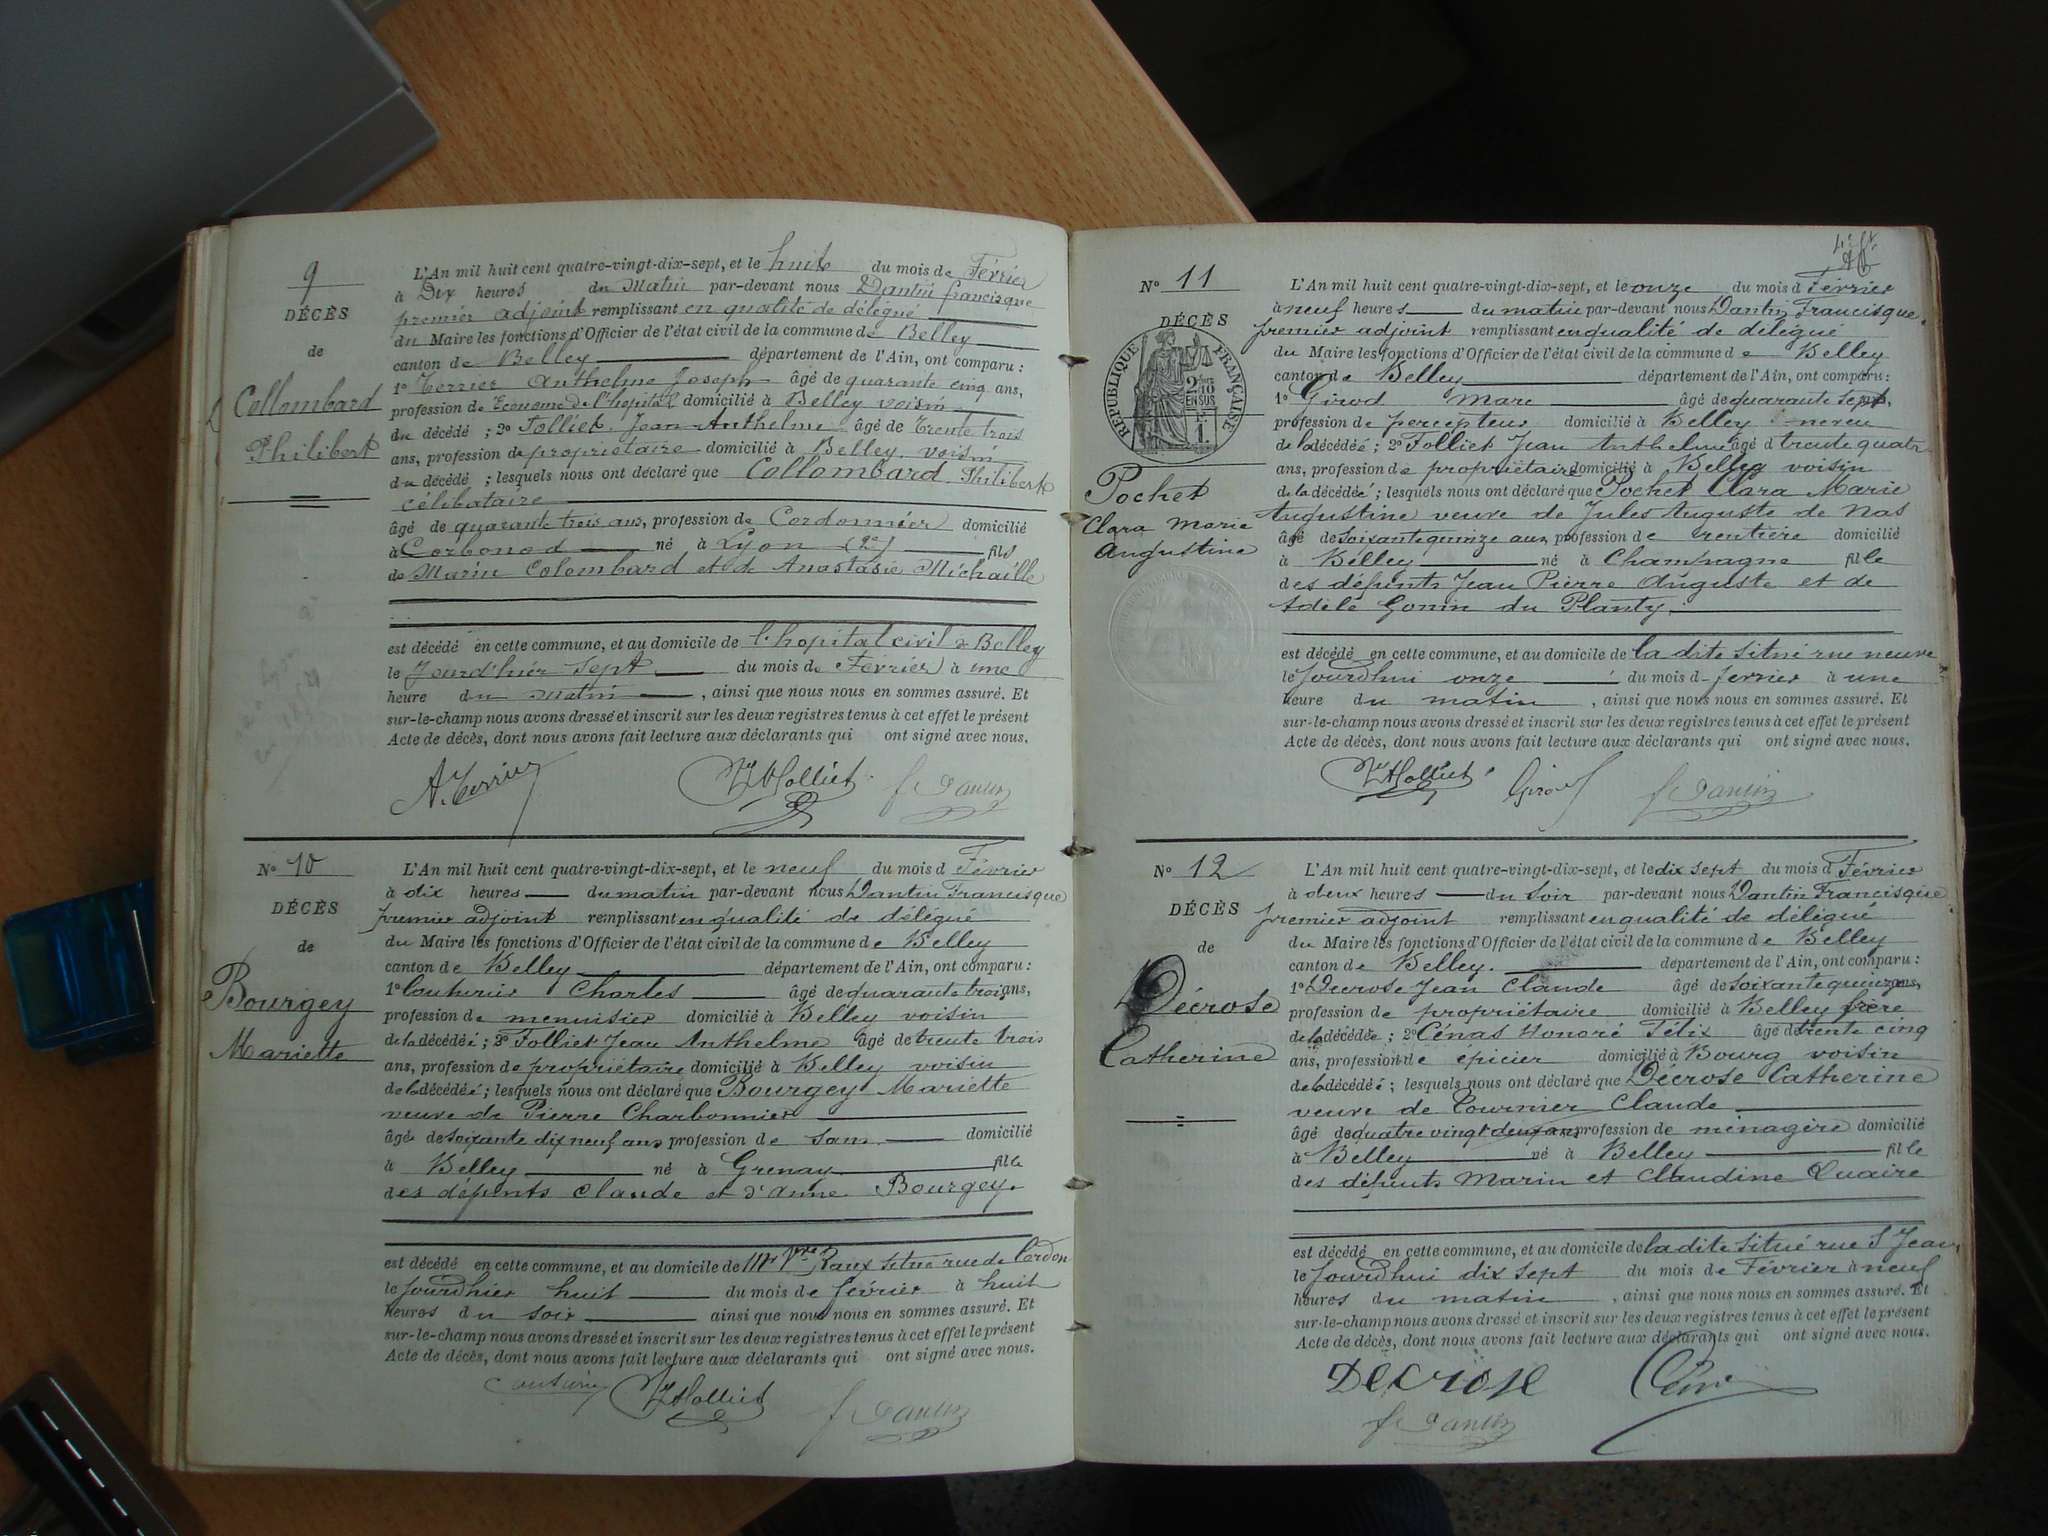 9
DÉCÈS
de
Collombard
Philibert
L'An mil huit cent quatre-vingt-dix-sept, et le huit du mois de Février
à Dix heures du Matin par-devant nous Dantin francisque
premier adjoint remplissant en qualité de délégué
du Maire les fonctions d'Officier de l'état civil de la commune de Belley
canton de Belley département de l'Ain, ont comparu :
1º Terrier Anthelme Joseph âgé de quarante cinq ans,
profession de Econome de l'hopital domicilié à Belley voisin
du décédé ; 2º Folliet Jean Anthelme âgé de trente trois
ans, profession de propriétaire domicilié à Belley voisin
du décédé ; lesquels nous ont déclaré que Collombard Philibert
célibataire
âgé de quarante trois ans, profession de Cordonnier domicilié
à Corbonod né à Lyon (2e) fils
de Marin Colombard et de Anastasie Michaille
est décédé en cette commune, et au domicile de l'hopital civil de Belley
le Jourd'hier sept du mois de Février à une
heure du matin , ainsi que nous nous en sommes assuré. Et
sur-le-champ nous avons dressé et inscrit sur les deux registres tenus à cet effet le présent
Acte de décès, dont nous avons fait lecture aux déclarants qui ont signé avec nous.
A. Terrier JAFolliet f Dantin
Nº 10
DÉCÈS
de
Bourgey
Mariette
L'An mil huit cent quatre-vingt-dix-sept, et le neuf du mois d Février
à dix heures du matin par-devant nous Dantin Francisque
premier adjoint remplissant en qualité de délégué
du Maire les fonctions d'Officier de l'état civil de la commune de Belley
canton de Belley département de l'Ain, ont comparu :
1º Couturier Charles âgé de quarante trois ans,
profession de menuisier domicilié à Belley voisin
de la décédée ; 2º Folliet Jean Anthelme âgé de trente trois
ans, profession de propriétaire domicilié à Belley voisin
de la décédée ; lesquels nous ont déclaré que Bourgey Mariette
veuve de Pierre Charbonnier
âgée de soixante dix neuf ans profession de sans domicilié
à Belley né à Grenay fille
des défunts Claude et d'Anne Bourgey.
est décédé en cette commune, et au domicile de Mr Vve Raux situé rue de Cordon
le Jourdhier huit du mois de février à huit
heures du soir ainsi que nous nous en sommes assuré. Et
sur-le-champ nous avons dressé et inscrit sur les deux registres tenus à cet effet le présent
Acte de décès, dont nous avons fait lecture aux déclarants qui ont signé avec nous.
Couturier JAFolliet f Dantin
Nº 11
DÉCÈS
RÉPUBLIQUE FRANÇAISE
2/10
EN SUS
1 F.
Pochet
Clara Marie
Augustine
L'An mil huit cent quatre-vingt-dix-sept, et le onze du mois d Février
à neuf heures du matin par-devant nous Dantin Francisque
premier adjoint remplissant en qualité de délégué
du Maire les fonctions d'Officier de l'état civil de la commune de Belley
canton de Belley département de l'Ain, ont comparu :
1º Girod Marc âgé de quarante sept,
profession de percepteur domicilié à Belley neveu
de la décédée ; 2º Folliet Jean Anthelme âgé d trente quatre
ans, profession de propriétaire domicilié à Belley voisin
de la décédée ; lesquels nous ont déclaré que Pochet Clara Marie
Augustine veuve de Jules Auguste de Nas
âgé de soixante quinze ans profession de rentière domicilié
à Belley né à Champagne fille
des défunts Jean Pierre Auguste et de
Adèle Gonin du Planty.
est décédé en cette commune, et au domicile de la dite situé rue neuve
le Jourdhui onze du mois d fevrier à une
heure du matin , ainsi que nous nous en sommes assuré. Et
sur-le-champ nous avons dressé et inscrit sur les deux registres tenus à cet effet le présent
Acte de décès, dont nous avons fait lecture aux déclarants qui ont signé avec nous.
JAFolliet Girod f Dantin
Nº 12
DÉCÈS
de
Décrose
Catherine
L'An mil huit cent quatre-vingt-dix-sept, et le dix sept du mois d Février
à deux heures du soir par-devant nous Dantin Francisque
premier adjoint remplissant en qualité de délégué
du Maire les fonctions d'Officier de l'état civil de la commune de Belley
canton de Belley. département de l'Ain, ont comparu :
1º Decrose Jean Claude âgé de soixante quinze ans,
profession de propriétaire domicilié à Belley frère
de la décédée ; 2º Cénas Honoré Félix âgé de trente cinq
ans, profession de epicier domicilié à Bourg voisin
de la décédée ; lesquels nous ont déclaré que Décrose Catherine
veuve de Tournier Claude
âgé de quatre vingt deux ans profession de ménagère domicilié
à Belley né à Belley fille
des défunts Marin et Claudine Quaire
est décédé en cette commune, et au domicile de la dite situé rue St Jean
le Jourdhui dix sept du mois de Février à neuf
heures du matin , ainsi que nous nous en sommes assuré. Et
sur-le-champ nous avons dressé et inscrit sur les deux registres tenus à cet effet le présent
Acte de décès, dont nous avons fait lecture aux déclarants qui ont signé avec nous.
DECROSE
f Dantin